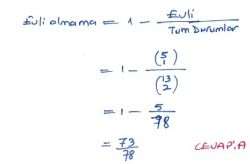 Evli olmama = 1 - Evli / Tüm Durumlar
= 1 - (5 1) / (13 2)
= 1 - 5 / 78
= 73 / 78
CEVAP:A